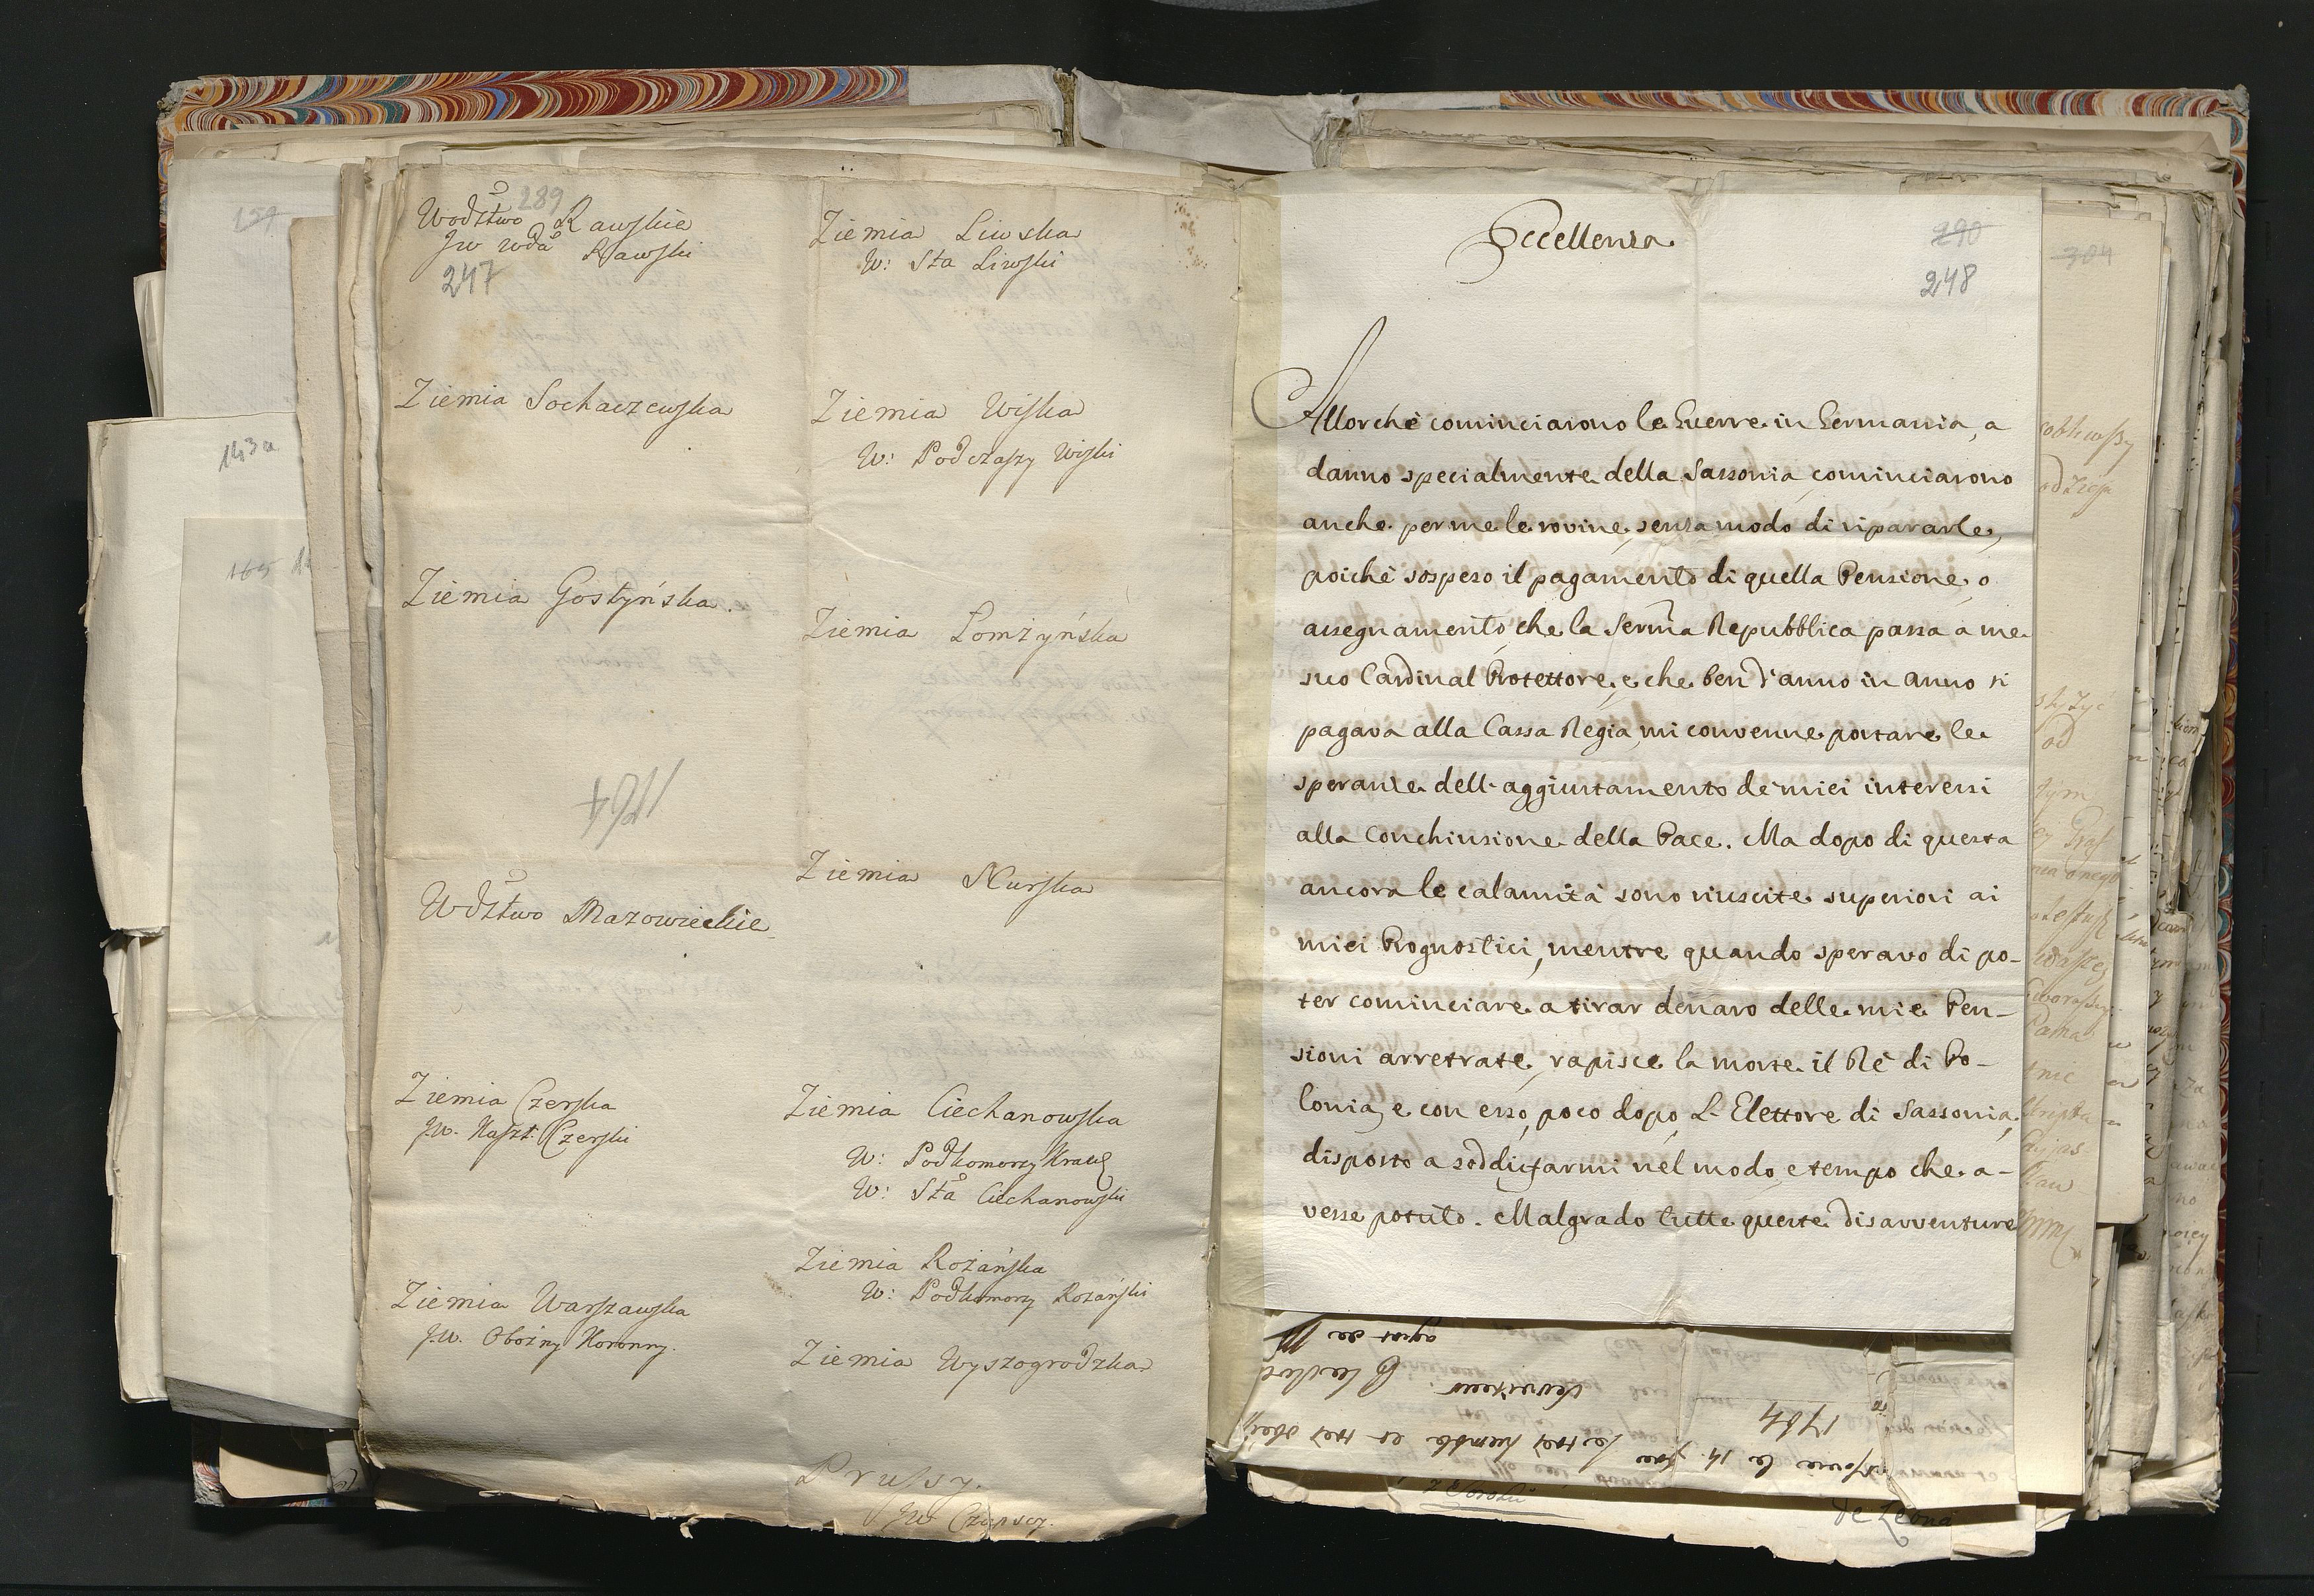 289
Wodztwo Rawskie
Jw Wda Rawski
247
Ziemia Sochaczewska
Ziemia Gostyńska.
1764
Wdztwo Mazowieckie
Ziemia Czerska
JW. Kaszt. Czerski
Ziemia Warszawska
J.W. Oboźny Koronny.
Ziemia Liwska
W: Sta Liwski
Ziemia Wiska
W: Podczaszy Wiski
Ziemia Łomżyńska
Ziemia Nurska
Ziemia Ciechanowska
W: Podkomorzy
W: Sta Ciechanowski
Ziemia Rożańska
W: Podkomorzy Rożański
Ziemia Wyszogrodzka
Prussy.
JW Czapscy.
Eccellenza
290
248
Allorchè cominciarono le Guerre in Germania, a
danno specialmente della Sassonia, cominciarono
anche per me le rovine, senza modo di ripararle,
poichè sospeso il pagamento di quella Pensione, o
assegnamento, che la Serm̃a Repubblica passa a me
suo Cardinal Protettore, e che ben d'anno in anno si
pagava alla Cassa Regia, mi convenne portare le
speranze dell'aggiustamento de' miei interessi
alla Conchiusione della Pace. Ma dopo di questa
ancora le calamità sono riuscite superiori ai
miei Prognostici, mentre quando speravo di po-
ter cominciare a tirar denaro delle mie Pen-
sioni arretrate, rapisce la morte il Rè di Po-
lonia, e con esso, poco dopo, L'Elettore di Sassonia,
disposto a soddisfarmi nel modo, e tempo che a-
vesse potuto. Malgrado tutte queste disavventure
304
143a
1764
de Leona